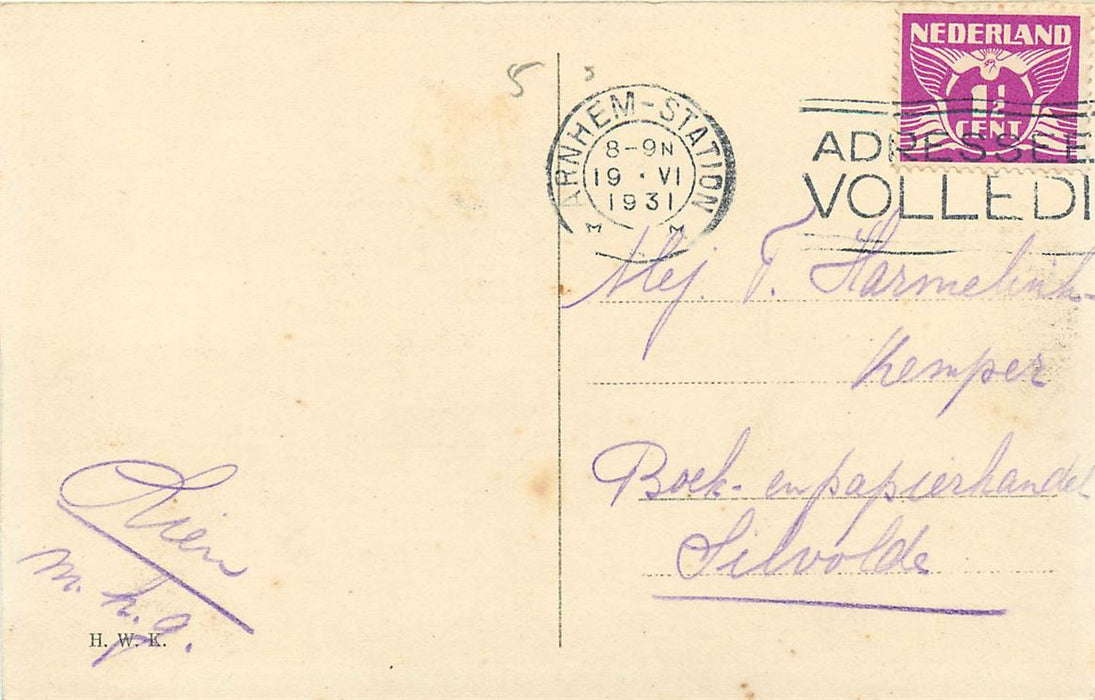 5
NEDERLAND
1½
CENT
ARNHEM-STATION
8-9N
19·VI
1931
ADRESSEE
VOLLEDI
Mej. T. Harmelink-
Kemper
Boek- en papierhandel
Silvolde
Rien
m. h. g.
H. W. K.